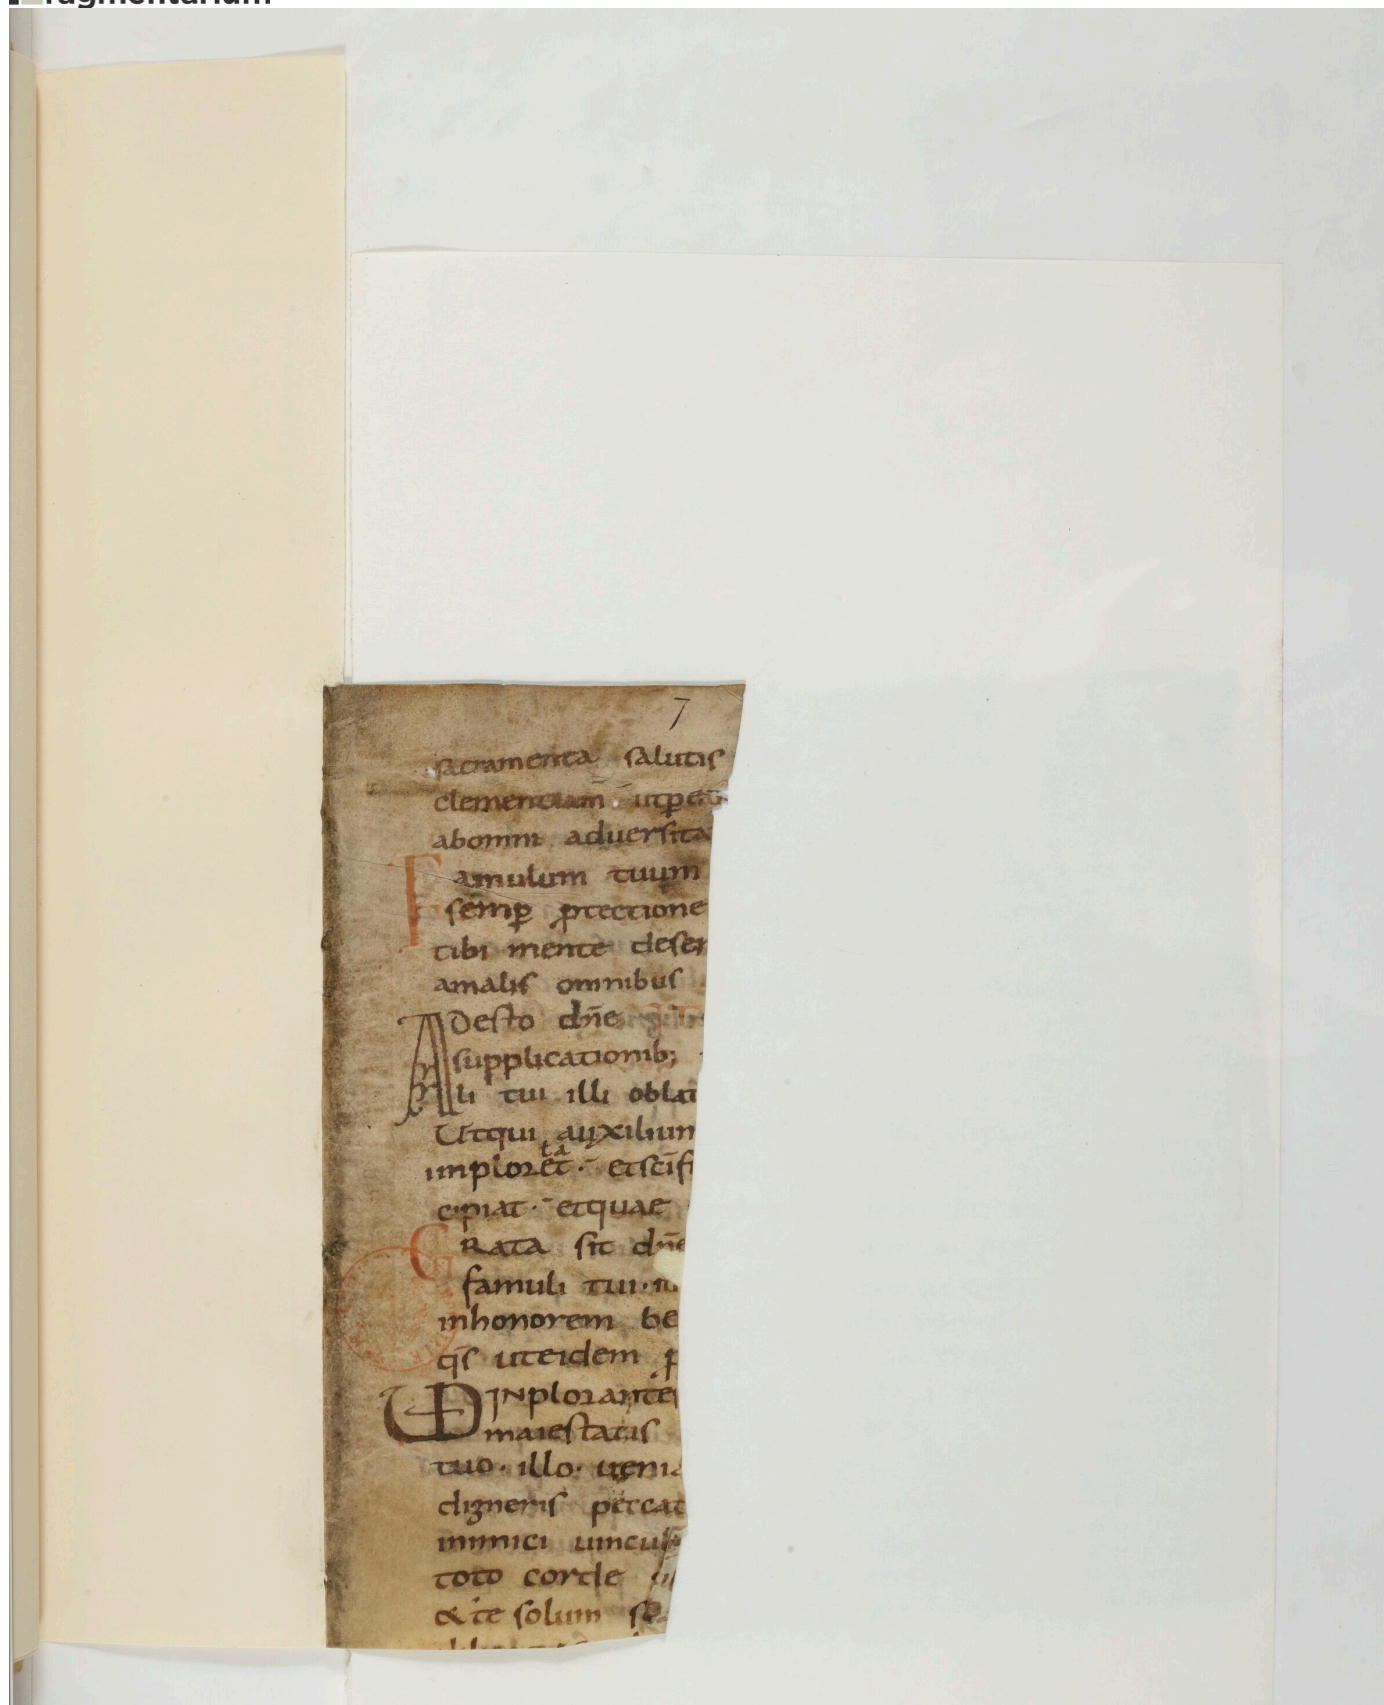 7
sacramenta salutis
clementiam̄ utꝑ
abomni aduersita
Famulum tuum
semꝑ ꝓtectione
tibi mente deser
amalis omnibus
Adesto dn̄e
supplicationib;
li tui illi oblat
Utqui auxilium
imploret ta · etsc̄if
cipiat · etquae
GRata sit dn̄e
famuli tui · n
inhonorem be
qs̄ uteidem ꝓ
UD INplorante
maiestatis
tuo · illo · uenia
digneris peccat
inimici uincul
toto corde
& te solum